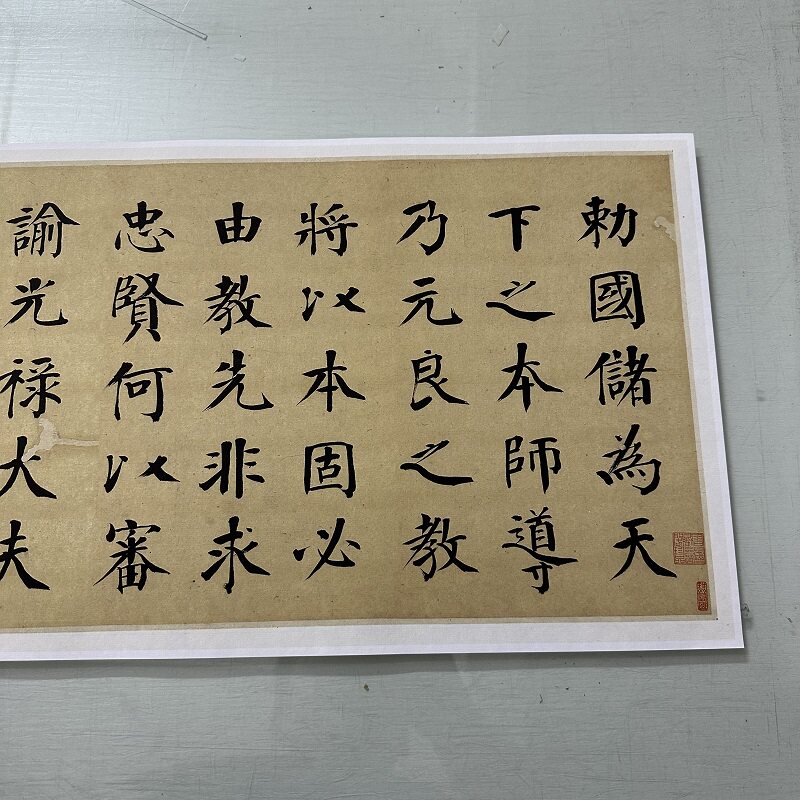 勅國儲為天
下之本師導
乃元良之教
將以本固必
由教先非求
忠賢何以審
諭光祿大夫